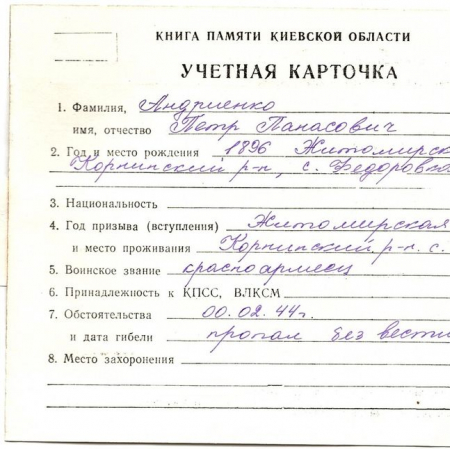 КНИГА ПАМЯТИ КИЕВСКОЙ ОБЛАСТИ
УЧЕТНАЯ КАРТОЧКА
1. Фамилия, Андриенко
имя, отчество Петр Панасович
2. Год и место рождения 1896 Житомирская
Корнинский р-н, с. Федоровка
3. Национальность
4. Год призыва (вступления) Житомирская
и место проживания Корнинский р-н. с.
5. Воинское звание красноармеец
6. Принадлежность к КПСС, ВЛКСМ
7. Обстоятельства 00.02.44г.
и дата гибели пропал без вести
8. Место захоронения